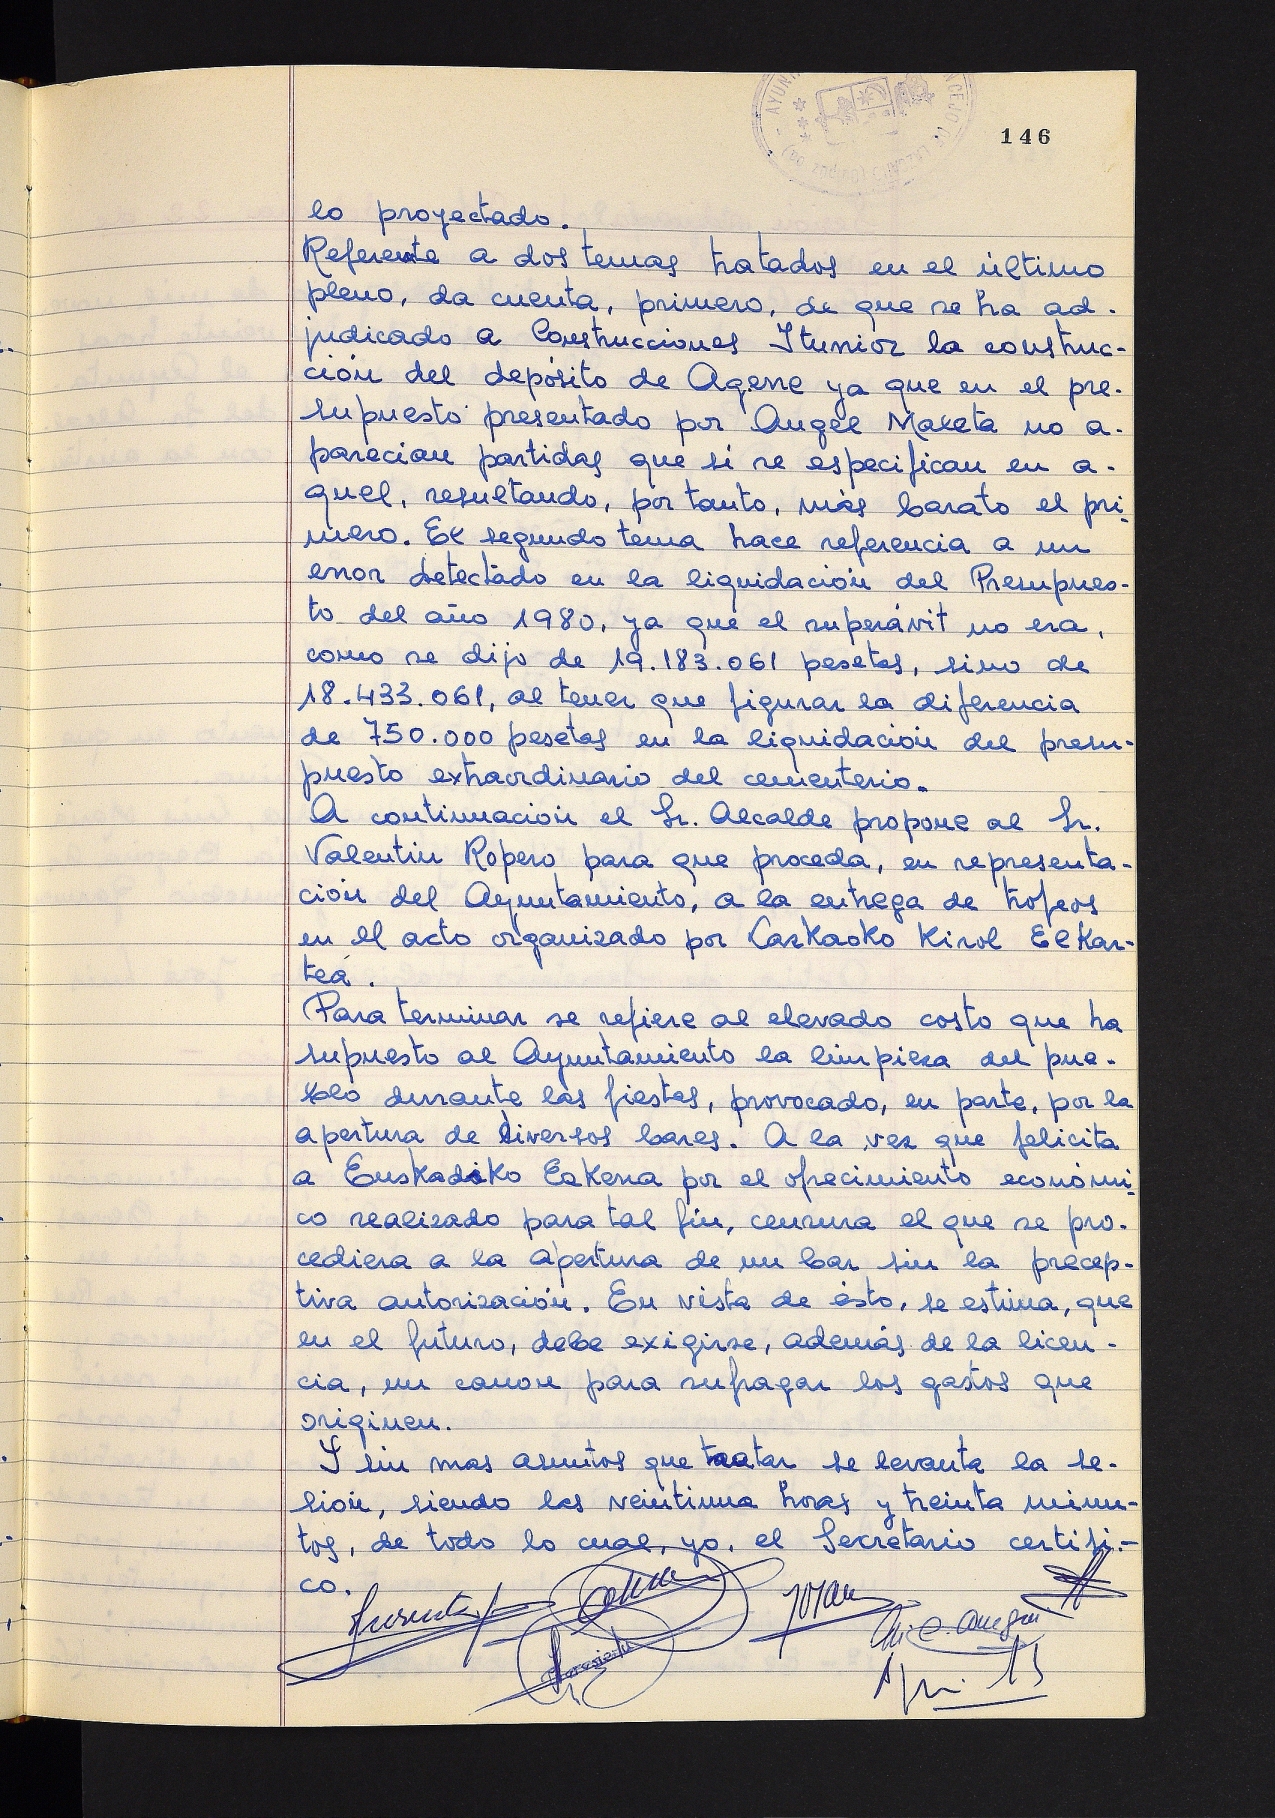 146
lo proyectado.
Referente a dos temas tratados en el último
pleno, da cuenta, primero, de que se ha ad-
judicado a Construcciones Iturrioz la construc-
ción del depósito de Agerre ya que en el pre-
supuesto presentado por Angel Maketa no a-
parecian partidas que si se especifican en a-
quel, resultando, por tanto, más barato el pri-
mero. El segundo tema hace referencia a un
error detectado en la liquidación del Presupues-
to del año 1980, ya que el superávit no era,
como se dijo de 19.183.061 pesetas, sino de
18.433.061, al tener que figurar la diferencia
de 750.000 pesetas en la liquidación del presu-
puesto extraordinario del cementerio.
A continuación el Sr. Alcalde propone al Sr.
Valentin Ropero para que proceda, en representa-
ción del Ayuntamiento, a la entrega de trofeos
en el acto organizado por Lazkaoko Kirol Elkar-
tea.
Para terminar se refiere al elevado costo que ha
supuesto al Ayuntamiento la limpieza del pue-
blo durante las fiestas, provocado, en parte, por la
apertura de diversos bares. A la vez que felicita
a Euskadiko Ezkerra por el ofrecimiento económi-
co realizado para tal fin, censura el que se pro-
cediera a la apertura de un bar sin la precep-
tiva autorización. En vista de ésto, se estima, que
en el futuro, debe exigirse, además de la licen-
cia, un canon para sufragar los gastos que
originen.
Y sin mas asuntos que tratar se levanta la se-
sión, siendo las veintiuna horas y treinta minu-
tos, de todo lo cual, yo, el Secretario certifi-
co.